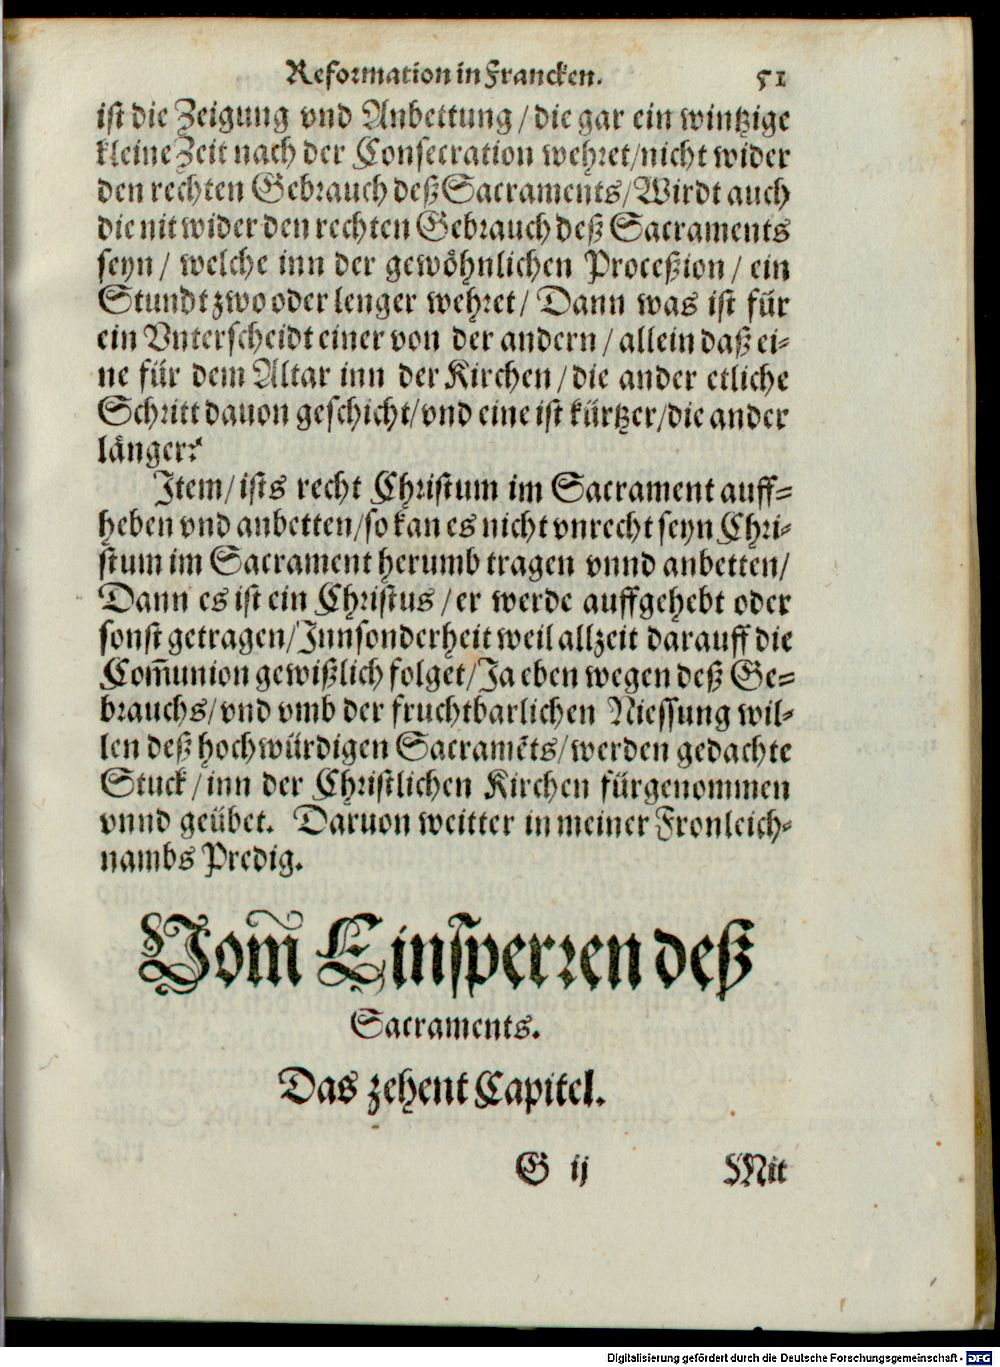 Reformation in Francken. 51
ist die Zeigung vnd Anbettung / die gar ein wintzige
kleine Zeit nach der Consecration wehret/nicht wider
den rechten Gebrauch deß Sacraments/Wirdt auch
die nit wider den rechten Gebrauch deß Sacraments
seyn / welche inn der gewöhnlichen Proceßion / ein
Stundt zwo oder lenger wehret / Dann was ist für
ein Vnterscheidt einer von der andern / allein daß ei-
ne für dem Altar inn der Kirchen / die ander etliche
Schritt dauon geschicht/vnd eine ist kürtzer/die ander
länger?
Item/ists recht Christum im Sacrament auff-
heben vnd anbetten/so kan es nicht vnrecht seyn Chri-
stum im Sacrament herumb tragen vnnd anbetten/
Dann es ist ein Christus / er werde auffgehebt oder
sonst getragen/Innsonderheit weil allzeit darauff die
Com̃union gewißlich folget/Ja eben wegen deß Ge-
brauchs/vnd vmb der fruchtbarlichen Niessung wil-
len deß hochwürdigen Sacramẽts/werden gedachte
Stuck / inn der Christlichen Kirchen fürgenommen
vnnd geübet. Daruon weitter in meiner Fronleich-
nambs Predig.
Vom̃ Einsperren deß
Sacraments.
Das zehent Capitel.
G ij Mit
Digitalisierung gefördert durch die Deutsche Forschungsgemeinschaft - DFG